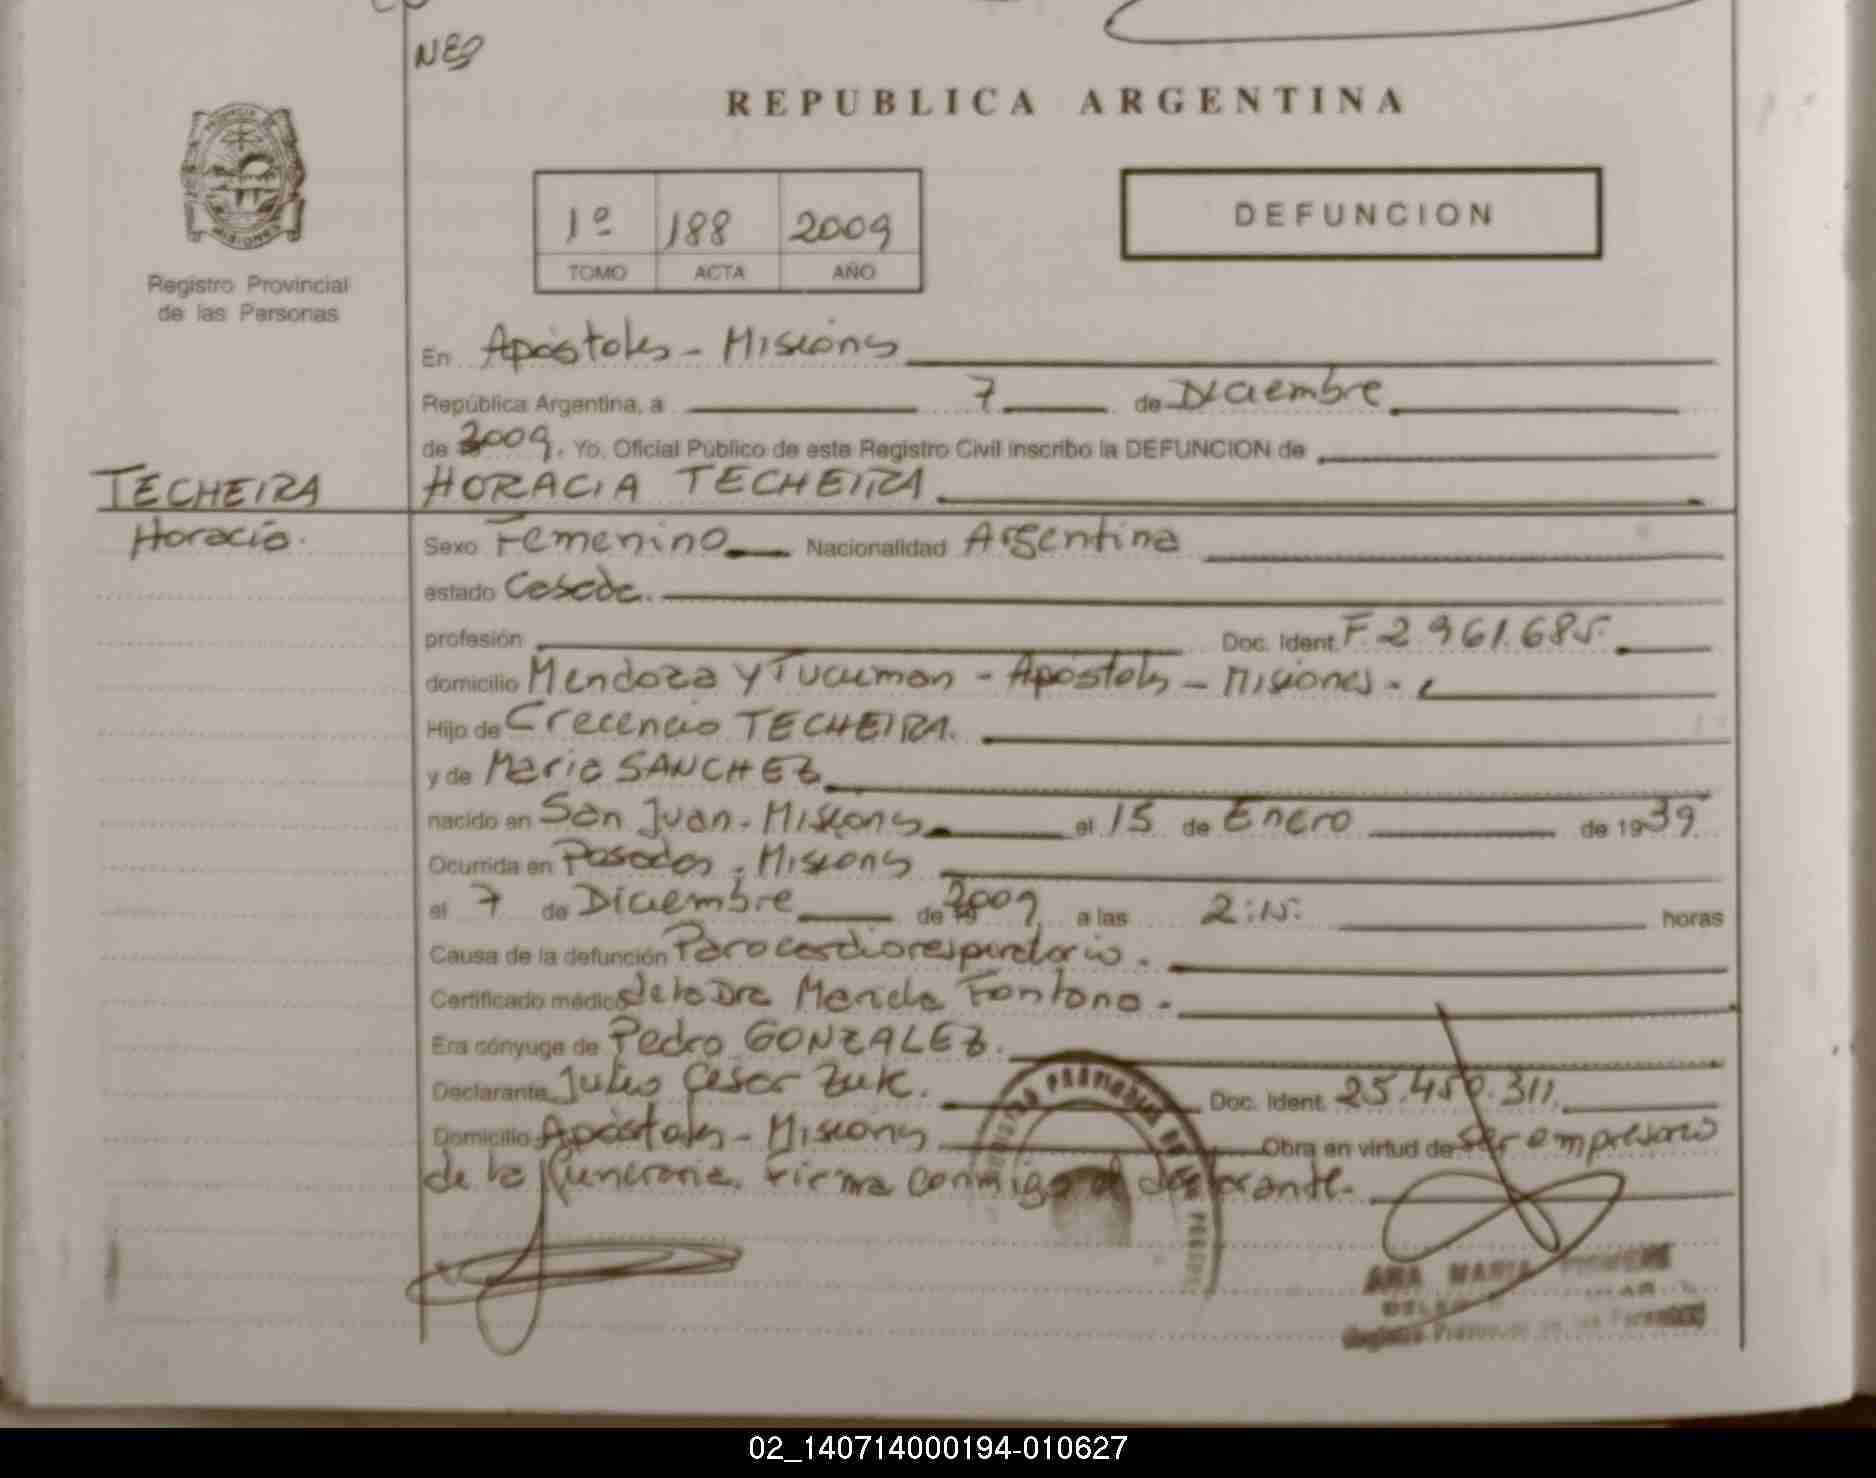 NES
REPUBLICA ARGENTINA
MISIONES
Registro Provincial
de las Personas
1º 188 2009
TOMO ACTA AÑO
DEFUNCION
En Apóstoles - Misiones
República Argentina, a 7 de Diciembre
de 2009. Yo, Oficial Público de este Registro Civil inscribo la DEFUNCION de
TECHEIRA HORACIA TECHEIRA
Horacia.
Sexo Femenino Nacionalidad Argentina
estado Casada.
profesión Doc. Ident. F. 2.961.685.
domicilio Mendoza y Tucuman - Apóstoles - Misiones -
Hijo de Crecencio TECHEIRA.
y de Maria SANCHEZ
nacido en San Juan - Misiones el 15 de Enero de 1939
Ocurrida en Posadas, Misiones
el 7 de Diciembre de 2009 a las 2:15. horas
Causa de la defunción Parocardiorespiratorio.
Certificado médico de la Dra Mariela Fontana.
Era cónyuge de Pedro GONZALEZ.
Declarante Julio Cesar Zuk. Doc. Ident. 25.450.311.
Domicilio Apóstoles - Misiones Obra en virtud de ser empresario
de la funeraria. Firma conmigo el declarante.
ANA MARIA
02_140714000194-010627